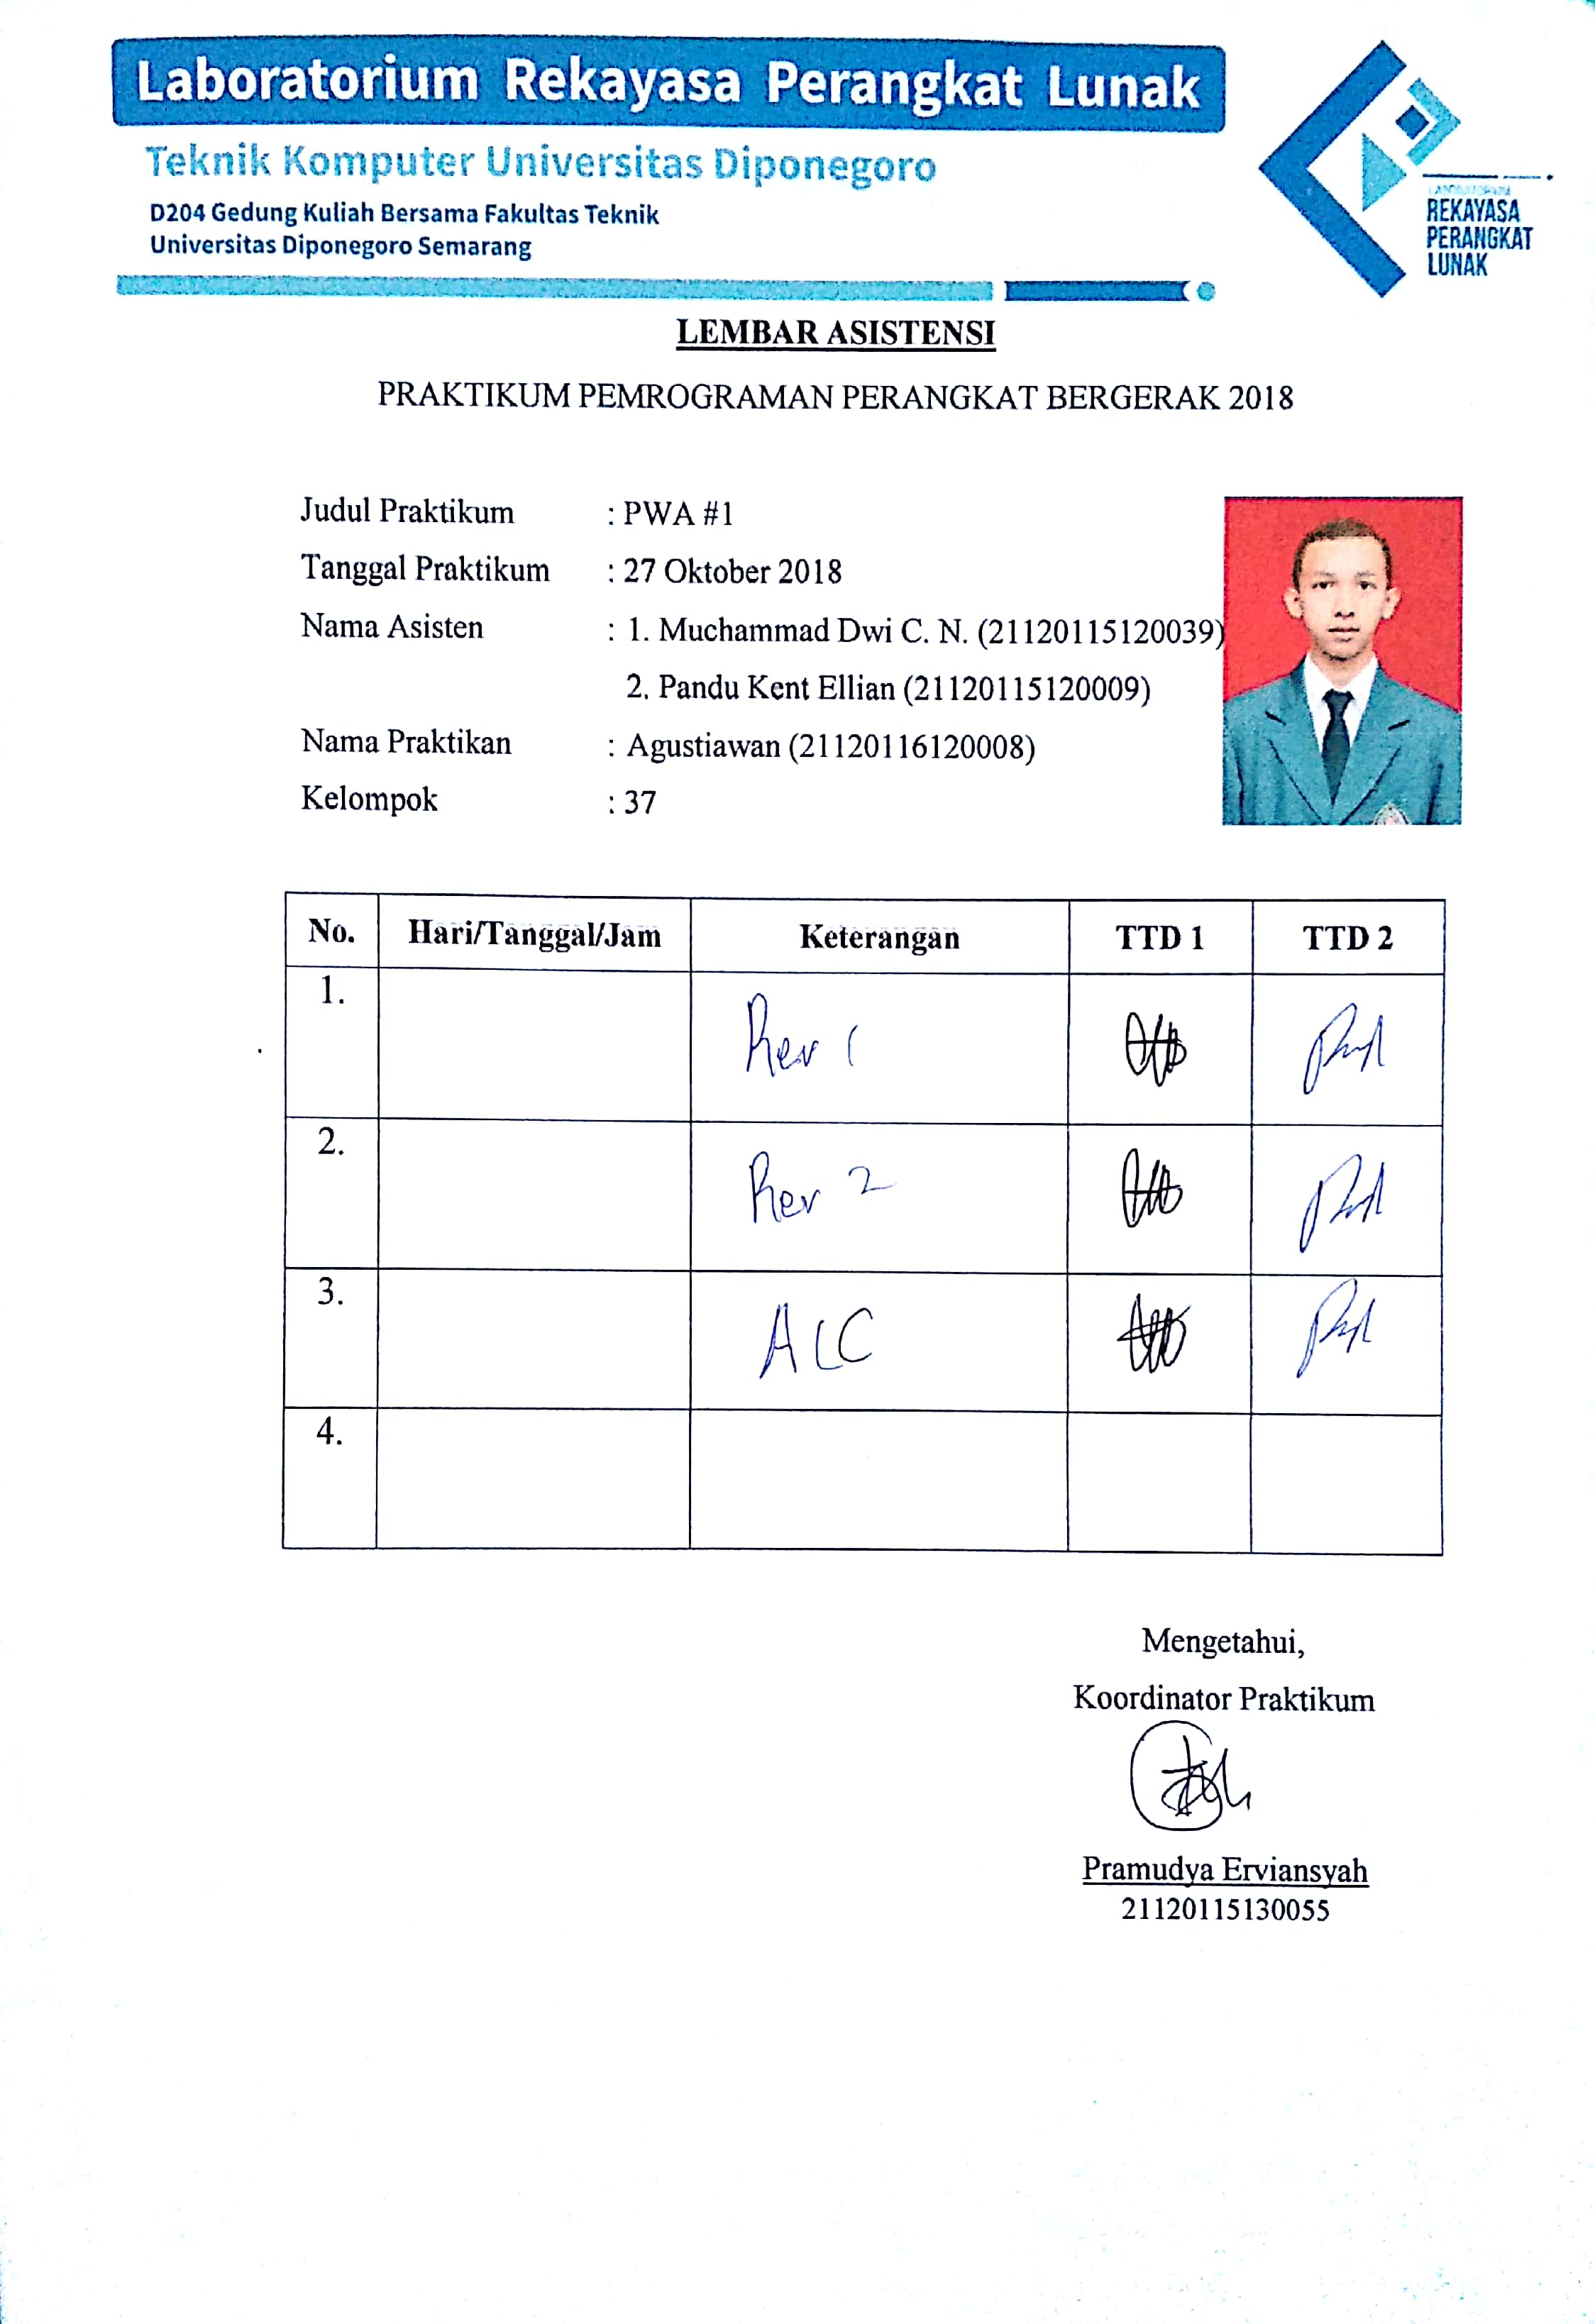 Laboratorium Rekayasa Perangkat Lunak
Teknik Komputer Universitas Diponegoro
D204 Gedung Kuliah Bersama Fakultas Teknik
Universitas Diponegoro Semarang
LABORATORIUM
REKAYASA
PERANGKAT
LUNAK
LEMBAR ASISTENSI
PRAKTIKUM PEMROGRAMAN PERANGKAT BERGERAK 2018
Judul Praktikum : PWA #1
Tanggal Praktikum : 27 Oktober 2018
Nama Asisten : 1. Muchammad Dwi C. N. (21120115120039)
2. Pandu Kent Ellian (21120115120009)
Nama Praktikan : Agustiawan (21120116120008)
Kelompok : 37
No. Hari/Tanggal/Jam Keterangan TTD 1 TTD 2
1. Rev 1
2. Rev 2
3. ACC
4.
Mengetahui,
Koordinator Praktikum
Pramudya Erviansyah
21120115130055